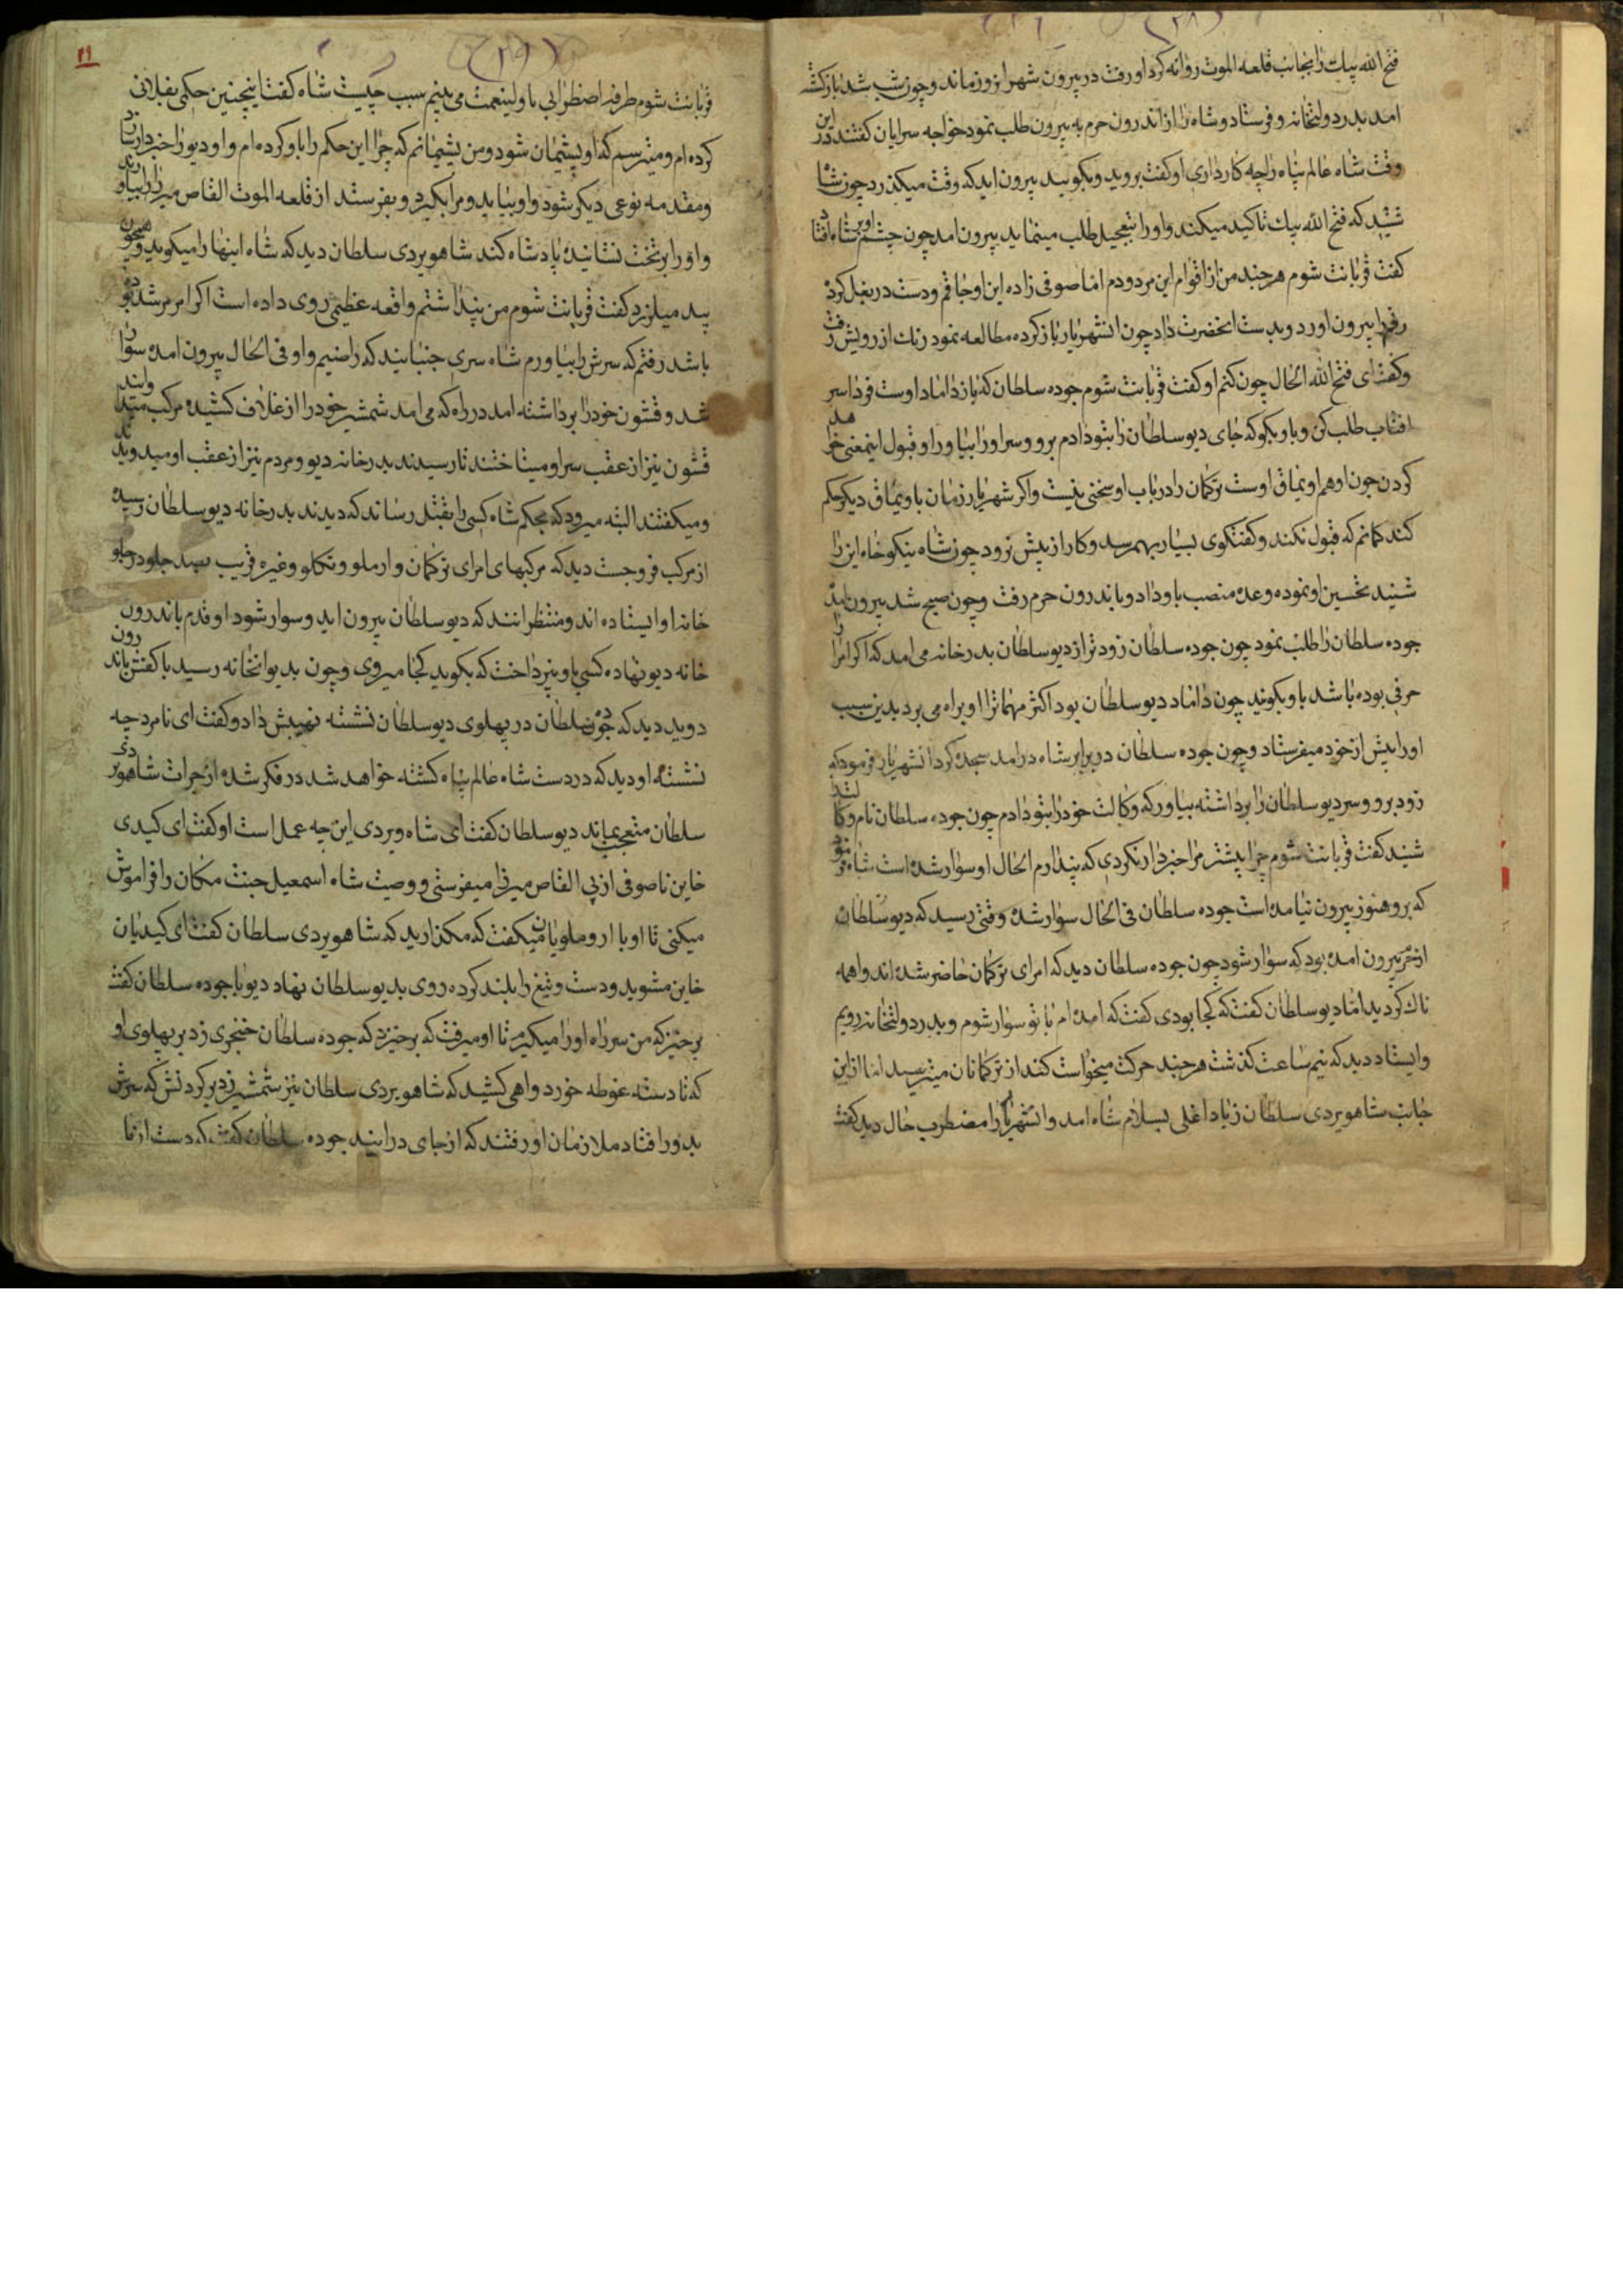 (۲۸)
فتح الله بیك را بجانب قلعه الموت روانه کرد او رفت در بیرون شهر انروز ماند و چون شب شد بازکشته
امد بدر دولتخانه و فرستاد و شاه را از اندرون حرم به بیرون طلب نمود خواجه سرایان کفتند در این
وقت شاه عالم پناه را چه کار داری او کفت بروید و بکویید بیرون اید که وقت میکذرد چون شاه
شنید که فتح الله بیك تاکید میکند و او را بتعجیل طلب مینماید بیرون امد چون چشم او بر شاه افتاد
کفت قربانت شوم هرچند من از اقوام این مردودم اما صوفی زاده این اوجاقم و دست در بغل کرد
رقم را بیرون اورد و بدست انحضرت داد چون انشهریار باز کرده مطالعه نمود رنك از رویش رفت
و کفت ای فتح الله الحال چون کنم او کفت قربانت شوم جوده سلطان که باز داماد اوست فردا سر
افتاب طلب کن و باو بکو که جای دیو سلطان را بتو دادم برو و سر او را بیاور او قبول اینمعنی خواهد
کردن چون او هم اویماق اوست ترکمان را در باب او سخنی نیست و اکر شهریار زمان باویماق دیکر حکم
کند کمانم که قبول نکند و کفتکوی بسیار بهم رسد و کار از پیش نرود چون شاه نیکو خواه این را
شنید تحسین او نموده وعده منصب باو داد و باندرون حرم رفت و چون صبح شد بیرون امد
جوده سلطان را طلب نمود چون جوده سلطان زودتر از دیو سلطان بدرخانه می امد که اکر امرا را
حرفی بوده باشد باو بکویند چون داماد دیو سلطان بود اکثر مهمات را او براه می برد بدین سبب
او را پیش از خود میفرستاد و چون جوده سلطان در برابر شاه در امد سجده کرد انشهریار فرمود که
زود برو و سر دیو سلطان را برداشته بیاور که وکالت خود را بتو دادم چون جوده سلطان نام وکالت
شنید کفت قربانت شوم چرا پیشتر مرا خبردار نکردی که پندارم الحال او سوار شده است شاه فرمود
که برو هنوز بیرون نیامده است جوده سلطان فی الحال سوار شده وقتی رسید که دیو سلطان
از حرم بیرون امده بود که سوار شود چون جوده سلطان دید که امرای ترکمان حاضر شده اند واهمه
ناك کردید اما دیو سلطان کفت که کجا بودی کفت که امده ام با تو سوار شوم و بدر دولتخانه رویم
و ایستاد دید که نیم ساعت کذشت هرچند حرکت میخواست کند از ترکمانان میترسید اما از این
جانب شاهویردی سلطان زیاد اغلی بسلام شاه امد و انشهریار را مضطرب حال دید کفت
۲۹
(۲۹)
قربانت شوم طرفه اضطرابی با ولینعمت می بینم سبب چیست شاه کفت اینچنین حکمی بفلانی
کرده ام و میترسم که او پشیمان شود و من پشیمانم که چرا این حکم را باو کرده ام و او دیو را خبردار سازد
و مقدمه نوعی دیکر شود و او بیاید و مرا بکیرد و بفرستد از قلعه الموت القاص میرزا را بیاورند
و او را بر تخت نشانیده پادشاه کند شاهویردی سلطان دید که شاه اینها را میکوید و همچون
بید میلرزد کفت قربانت شوم من پنداشتم واقعه عظیمی روی داده است اکر امر مرشد بوده
باشد رفتم که سرش را بیاورم شاه سری جنبانید که راضیم و او فی الحال بیرون امده سوار
شد و قشون خود را برداشته امد در راه که می امد شمشیر خود را از غلاف کشیده مرکب میدوانید
قشون نیز از عقب سر او میتاختند تا رسیدند بدرخانه دیو و مردم نیز از عقب او میدویدند
و میکفتند البته میرود که بحکم شاه کسی را بقتل رساند که دیدند بدرخانه دیو سلطان رسیده
از مرکب فروجست دید که مرکبهای امرای ترکمان و ارملو و تکلو و غیره قریب بصد جلو در جلو
خانه او ایستاده اند و منتظر انند که دیو سلطان بیرون اید و سوار شود او قدم باندرون
خانه دیو نهاده کسی باو نپرداخت که بکوید کجا میروی و چون بدیوانخانه رسید با کفش باندرون
دوید دید که جوده سلطان در پهلوی دیو سلطان نشسته نهیبش داد و کفت ای نامرد چه
نشسته او دید که در دست شاه عالم پناه کشته خواهد شد در فکر شده از جرات شاهویردی
سلطان متعجب بماند دیو سلطان کفت ای شاه ویردی این چه عمل است او کفت ای کیدی
خاین ناصوفی از پی القاص میرزا میفرستی و وصیت شاه اسمعیل جنت مکان را فراموش
میکنی تا او با اروملویان میکفت که مکذارید که شاهویردی سلطان کفت ای کیدیان
خاین مشوید و دست و تیغ را بلند کرده روی بدیو سلطان نهاد دیو با جوده سلطان کفت
برخیز که من سر راه او را میکیرم تا او میرفت که برخیزد که جوده سلطان خنجری زد بر پهلوی او
که تا دسته غوطه خورد و اهی کشید که شاهویردی سلطان نیز شمشیر زد بر کردنش که سرش
بدور افتاد ملازمان او رفتند که از جای در ایند جوده سلطان کفت که دست از پا